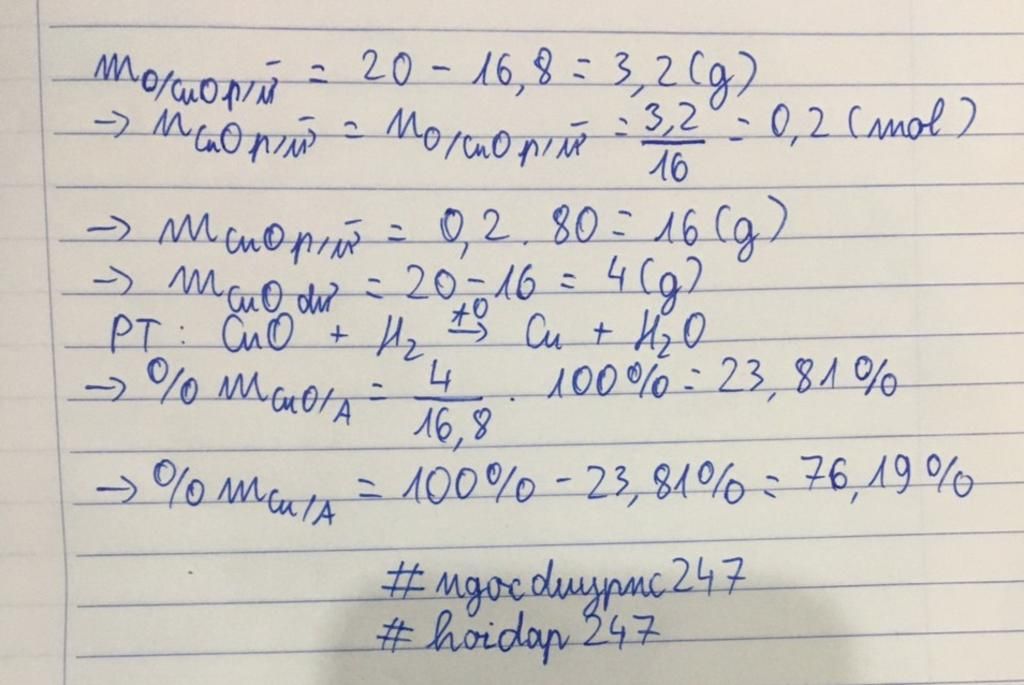 mO/CuO p/ứ = 20 - 16,8 = 3,2 (g)
→ nCuO p/ứ = nO/CuO p/ứ = 3,2/16 = 0,2 (mol)
→ mCuO p/ứ = 0,2 . 80 = 16 (g)
→ mCuO dư = 20 - 16 = 4 (g)
PT: CuO + H2 →(t0) Cu + H2O
→ % mCuO/A = 4/16,8 . 100% = 23,81%
→ % mCu/A = 100% - 23,81% = 76,19%
#ngocduypnc247
#hoidap247